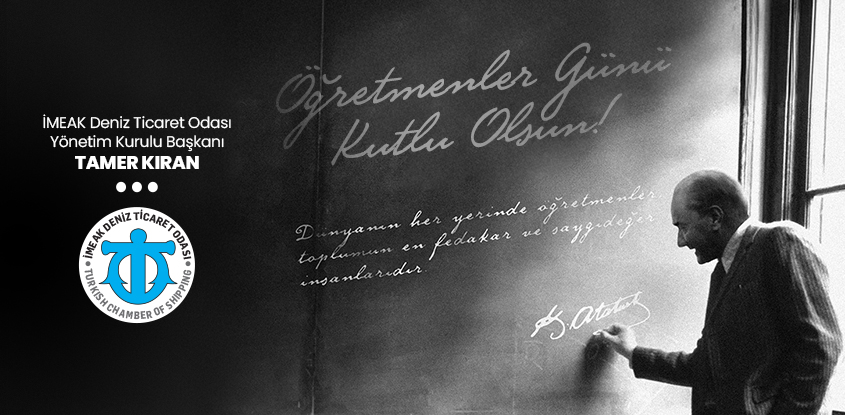 İMEAK Deniz Ticaret Odası
Yönetim Kurulu Başkanı
TAMER KIRAN
İMEAK DENİZ TİCARET ODASI
TURKISH CHAMBER OF SHIPPING
Öğretmenler Günü
Kutlu Olsun!
Dünyanın her yerinde öğretmenler
toplumun en fedakar ve saygıdeğer
insanlarıdır.
K. Atatürk